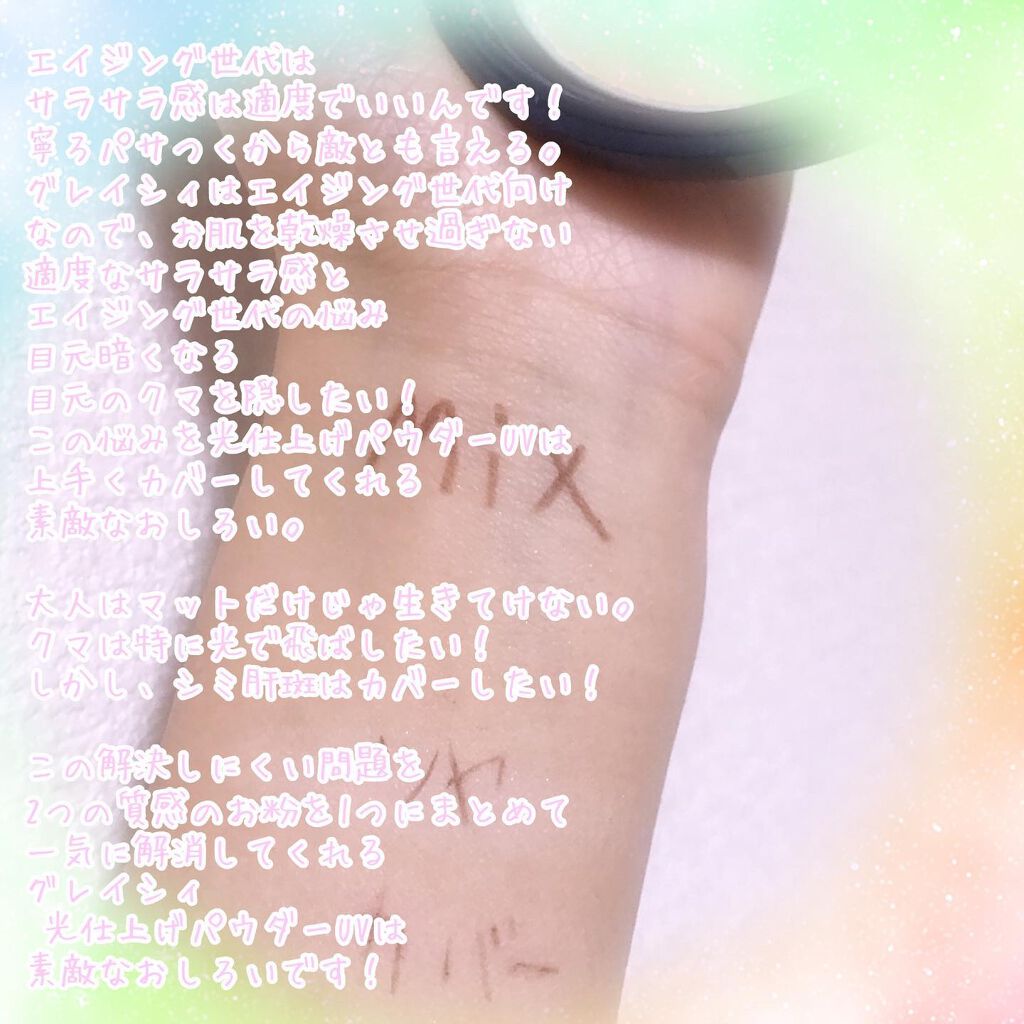 エイジング世代は
サラサラ感は適度でいいんです！
寧ろパサつくから敵とも言えろ。
グレイシィはエイジング世代向け
なので、お肌を乾燥させ過ぎない
適度なサラサラ感と
エイジング世代の悩み
目元暗くなる
目元のクマを隠したい！
この悩みを光仕上げパウダーUVは
上手くカバーしてくれる
素敵なおしろい。
mix
大人はマットだけじゃ生きてけない。
クマは特に光で飛ばしたい！
しかし、シミ肝斑はカバーしたい！
この解決しにくい問題を
ツヤ
2つの質感のお粉を1つにまとめて
一気に解消してくれる
グレイシィ
光仕上げパウダーUVは
カバー
素敵なおしろいです！